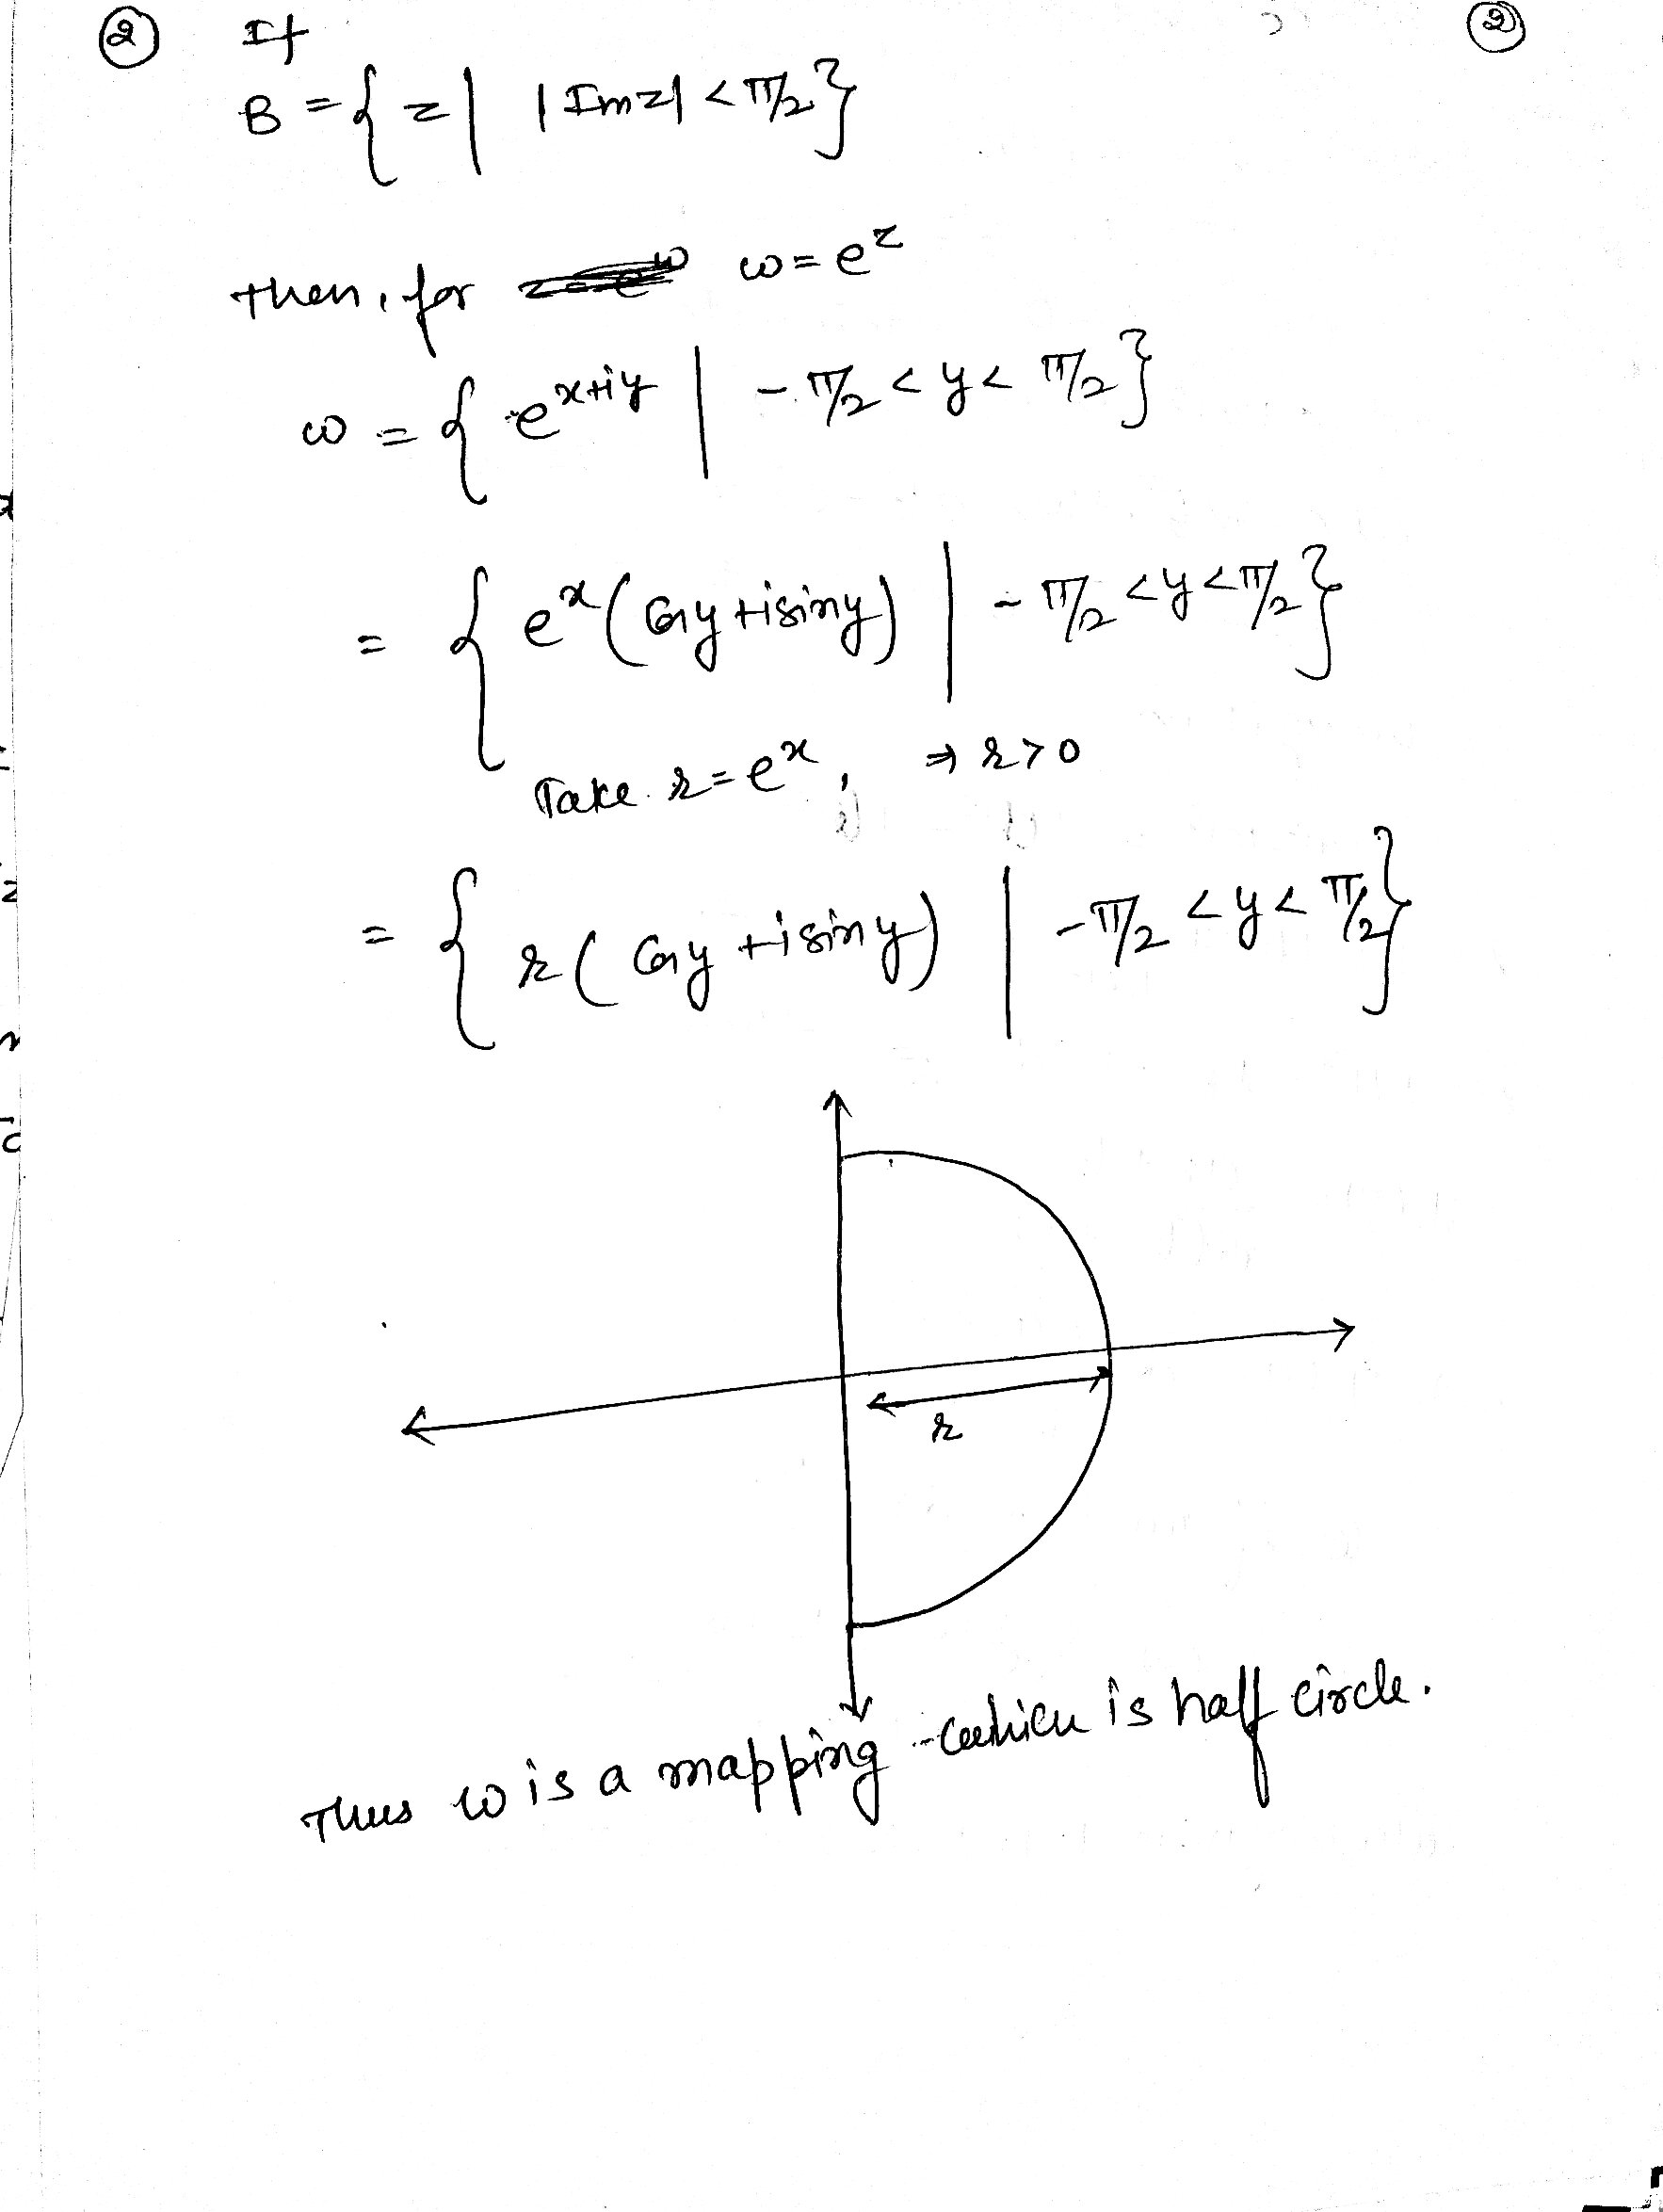 ② If ②
B = { z | |Im z| < π/2 }
Then, for w = e^z
w = { e^{x+iy} | -π/2 < y < π/2 }
= { e^x ( Cos y + i sin y ) | -π/2 < y < π/2 }
Take r = e^x, ⇒ r > 0
= { r ( Cos y + i sin y ) | -π/2 < y < π/2 }
r
Thus w is a mapping which is half circle.